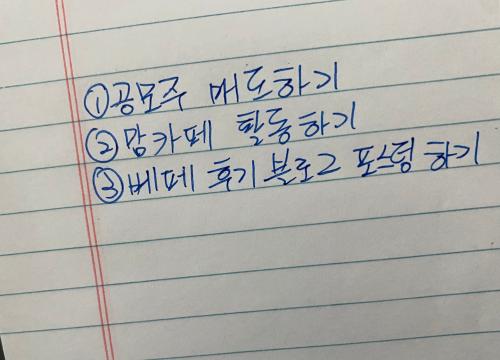 ①공모주 매도하기
②맘카페 활동하기
③베페 후기 블로그 포스팅 하기